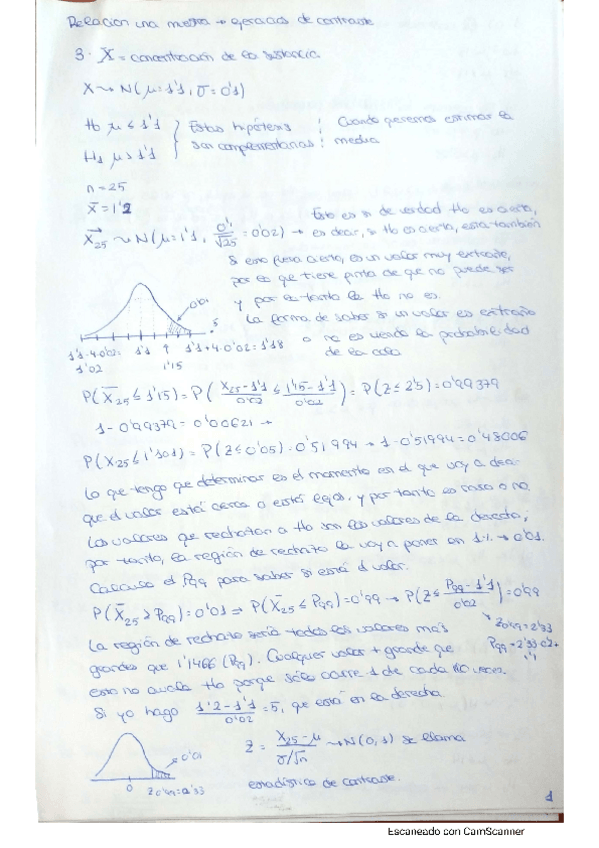 Relacion una muestra → ejercicios de contraste
3. X = concentración de la sustancia.
X ~> N(μ=1'1, σ=0'1)
H0 μ ≤ 1'1 } Estas hipótesis ; Cuando queremos estimar la
H1 μ > 1'1 } son complementarias ; media
n=25
x̄=1'2
X̄25 ~> N(μ=1'1, 0'1/√25 = 0'02) → Esto es si de verdad H0 es cierta,
es decir, si H0 es cierta, esta también
Si esto fuera cierto, es un valor muy extraño,
por lo que tiene pinta de que no puede ser
y por lo tanto la H0 no es.
La forma de saber si un valor es extraño
o no es viendo la probabilidad
de la cola
0'01
1'1-4·0'02= 1'1 ↑ 1'1+4·0'02=1'18
1'02 1'15
P(X̄25 ≤ 1'15) = P( (X̄25-1'1)/0'02 ≤ (1'15-1'1)/0'02 ) = P(Z ≤ 2'5) = 0'99379
1-0'99379 = 0'00621 →
P(X̄25 ≤ 1'101) = P(Z ≤ 0'05) = 0'51994 → 1-0'51994 = 0'48006
Lo que tengo que determinar es el momento en el que voy a decir
que el valor está cerca o está lejos, y por tanto es raro o no.
Los valores que rechazan a H0 son los valores de la derecha,
por tanto, la región de rechazo la voy a poner en 1% → 0'01.
Calculo el P99 para saber si está el valor.
P(X̄25 ≥ P99) = 0'01 ⇒ P(X̄25 ≤ P99) = 0'99 → P(Z ≤ (P99-1'1)/0'02) = 0'99
Z0'99 = 2'33
La región de rechazo sería todos los valores más
P99 = 2'33·0'02+
1'1
grandes que 1'1466 (P99). Cualquier valor + grande que
esto no avala H0 porque sólo ocurre 1 de cada 100 veces.
Si yo hago (1'2-1'1)/0'02 = 5, que está en la derecha
0'01
0 Z0'99=2'33
Z = (X̄25-μ)/(σ/√n) ~> N(0,1) se llama
estadístico de contraste.
1
Escaneado con CamScanner